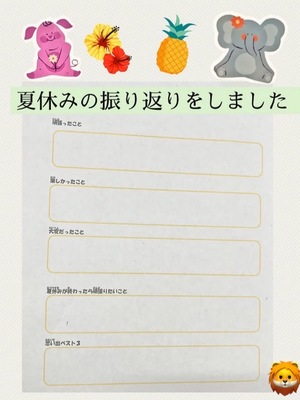 夏休みの振り返りをしました
頑張ったこと
楽しかったこと
大変だったこと
夏休みが終わったら頑張りたいこと
思い出ベスト3